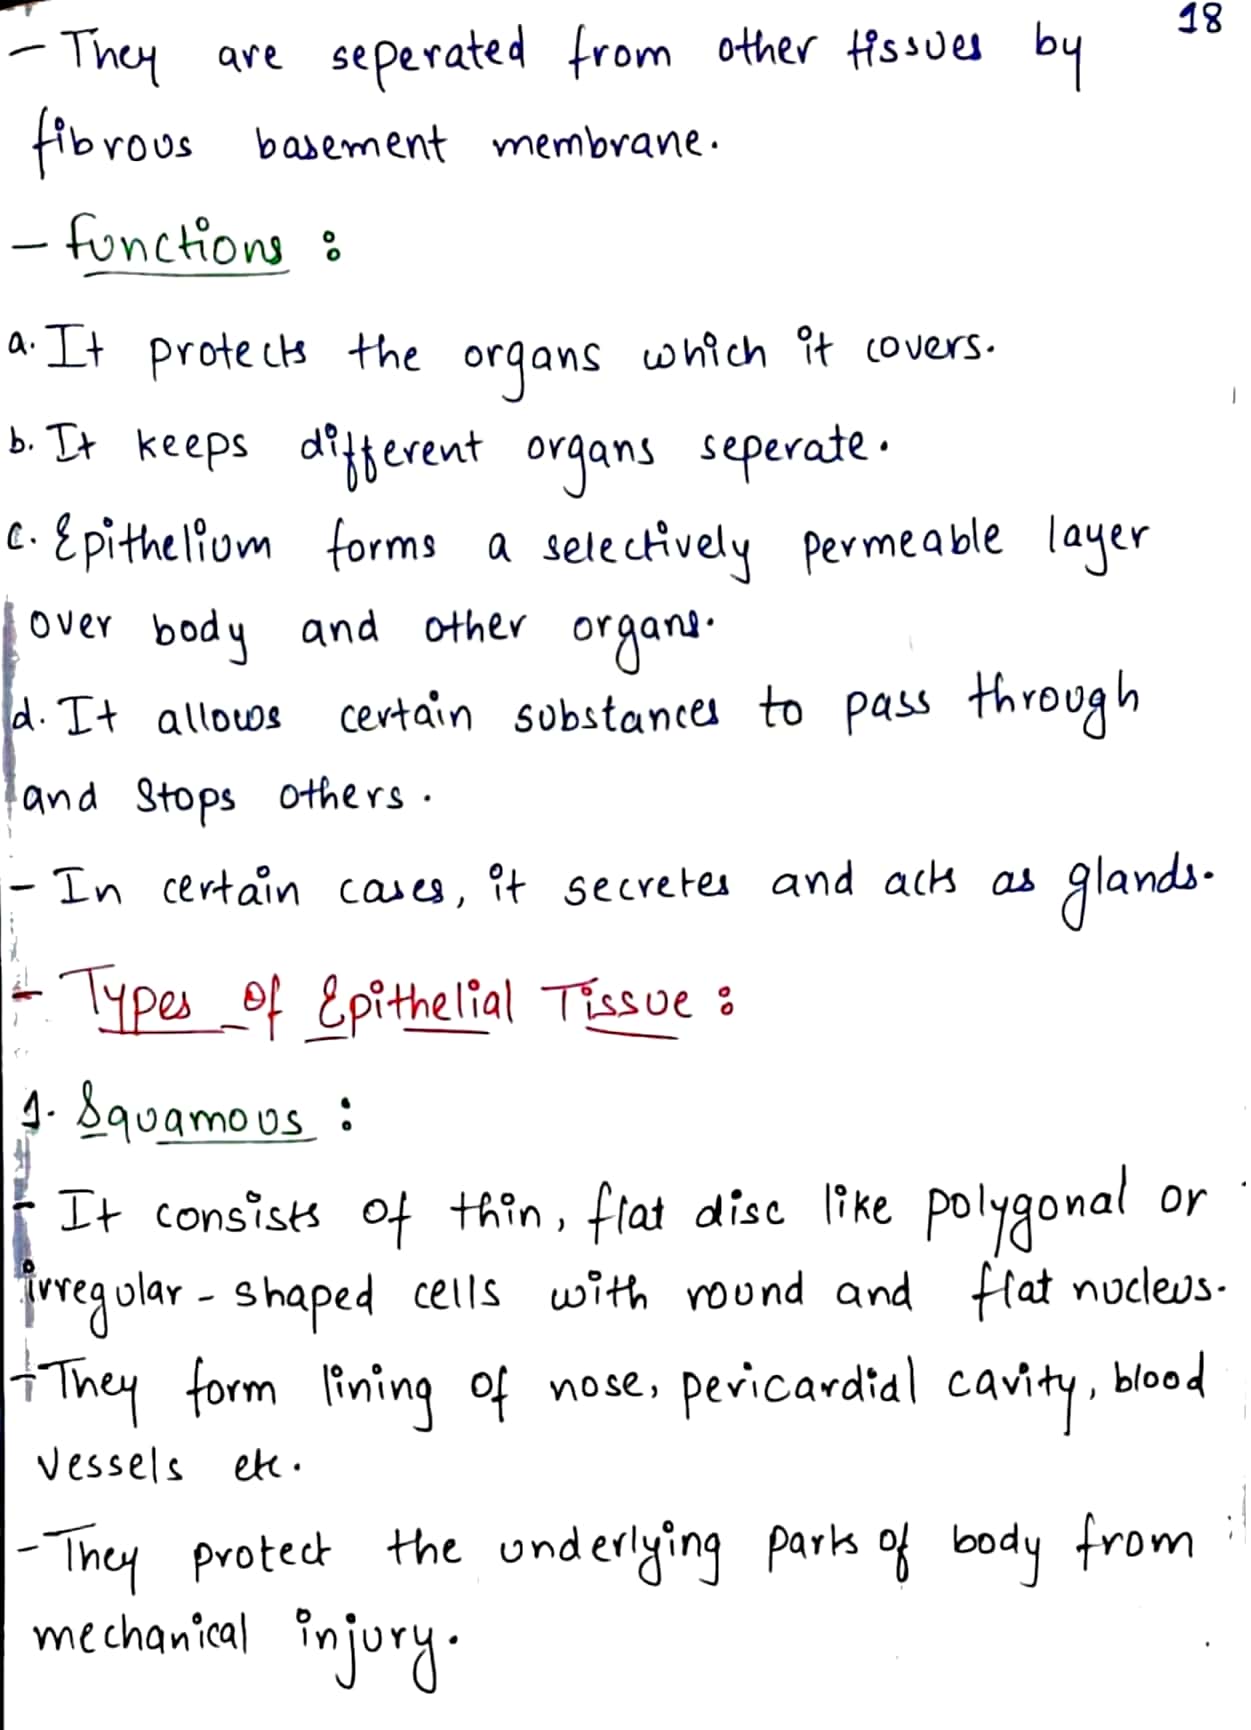 18
- They are seperated from other tissues by
fibrous basement membrane.
- functions :
a. It protects the organs which it covers.
b. It keeps different organs seperate.
c. Epithelium forms a selectively permeable layer
over body and other organs.
d. It allows certain substances to pass through
and Stops others.
- In certain cases, it secretes and acts as glands.
- Types Of Epithelial Tissue :
1. Squamous :
- It consists of thin, flat disc like polygonal or
irregular - shaped cells with round and flat nucleus.
- They form lining of nose, pericardial cavity, blood
vessels etc.
- They protect the underlying parts of body from
mechanical injury.